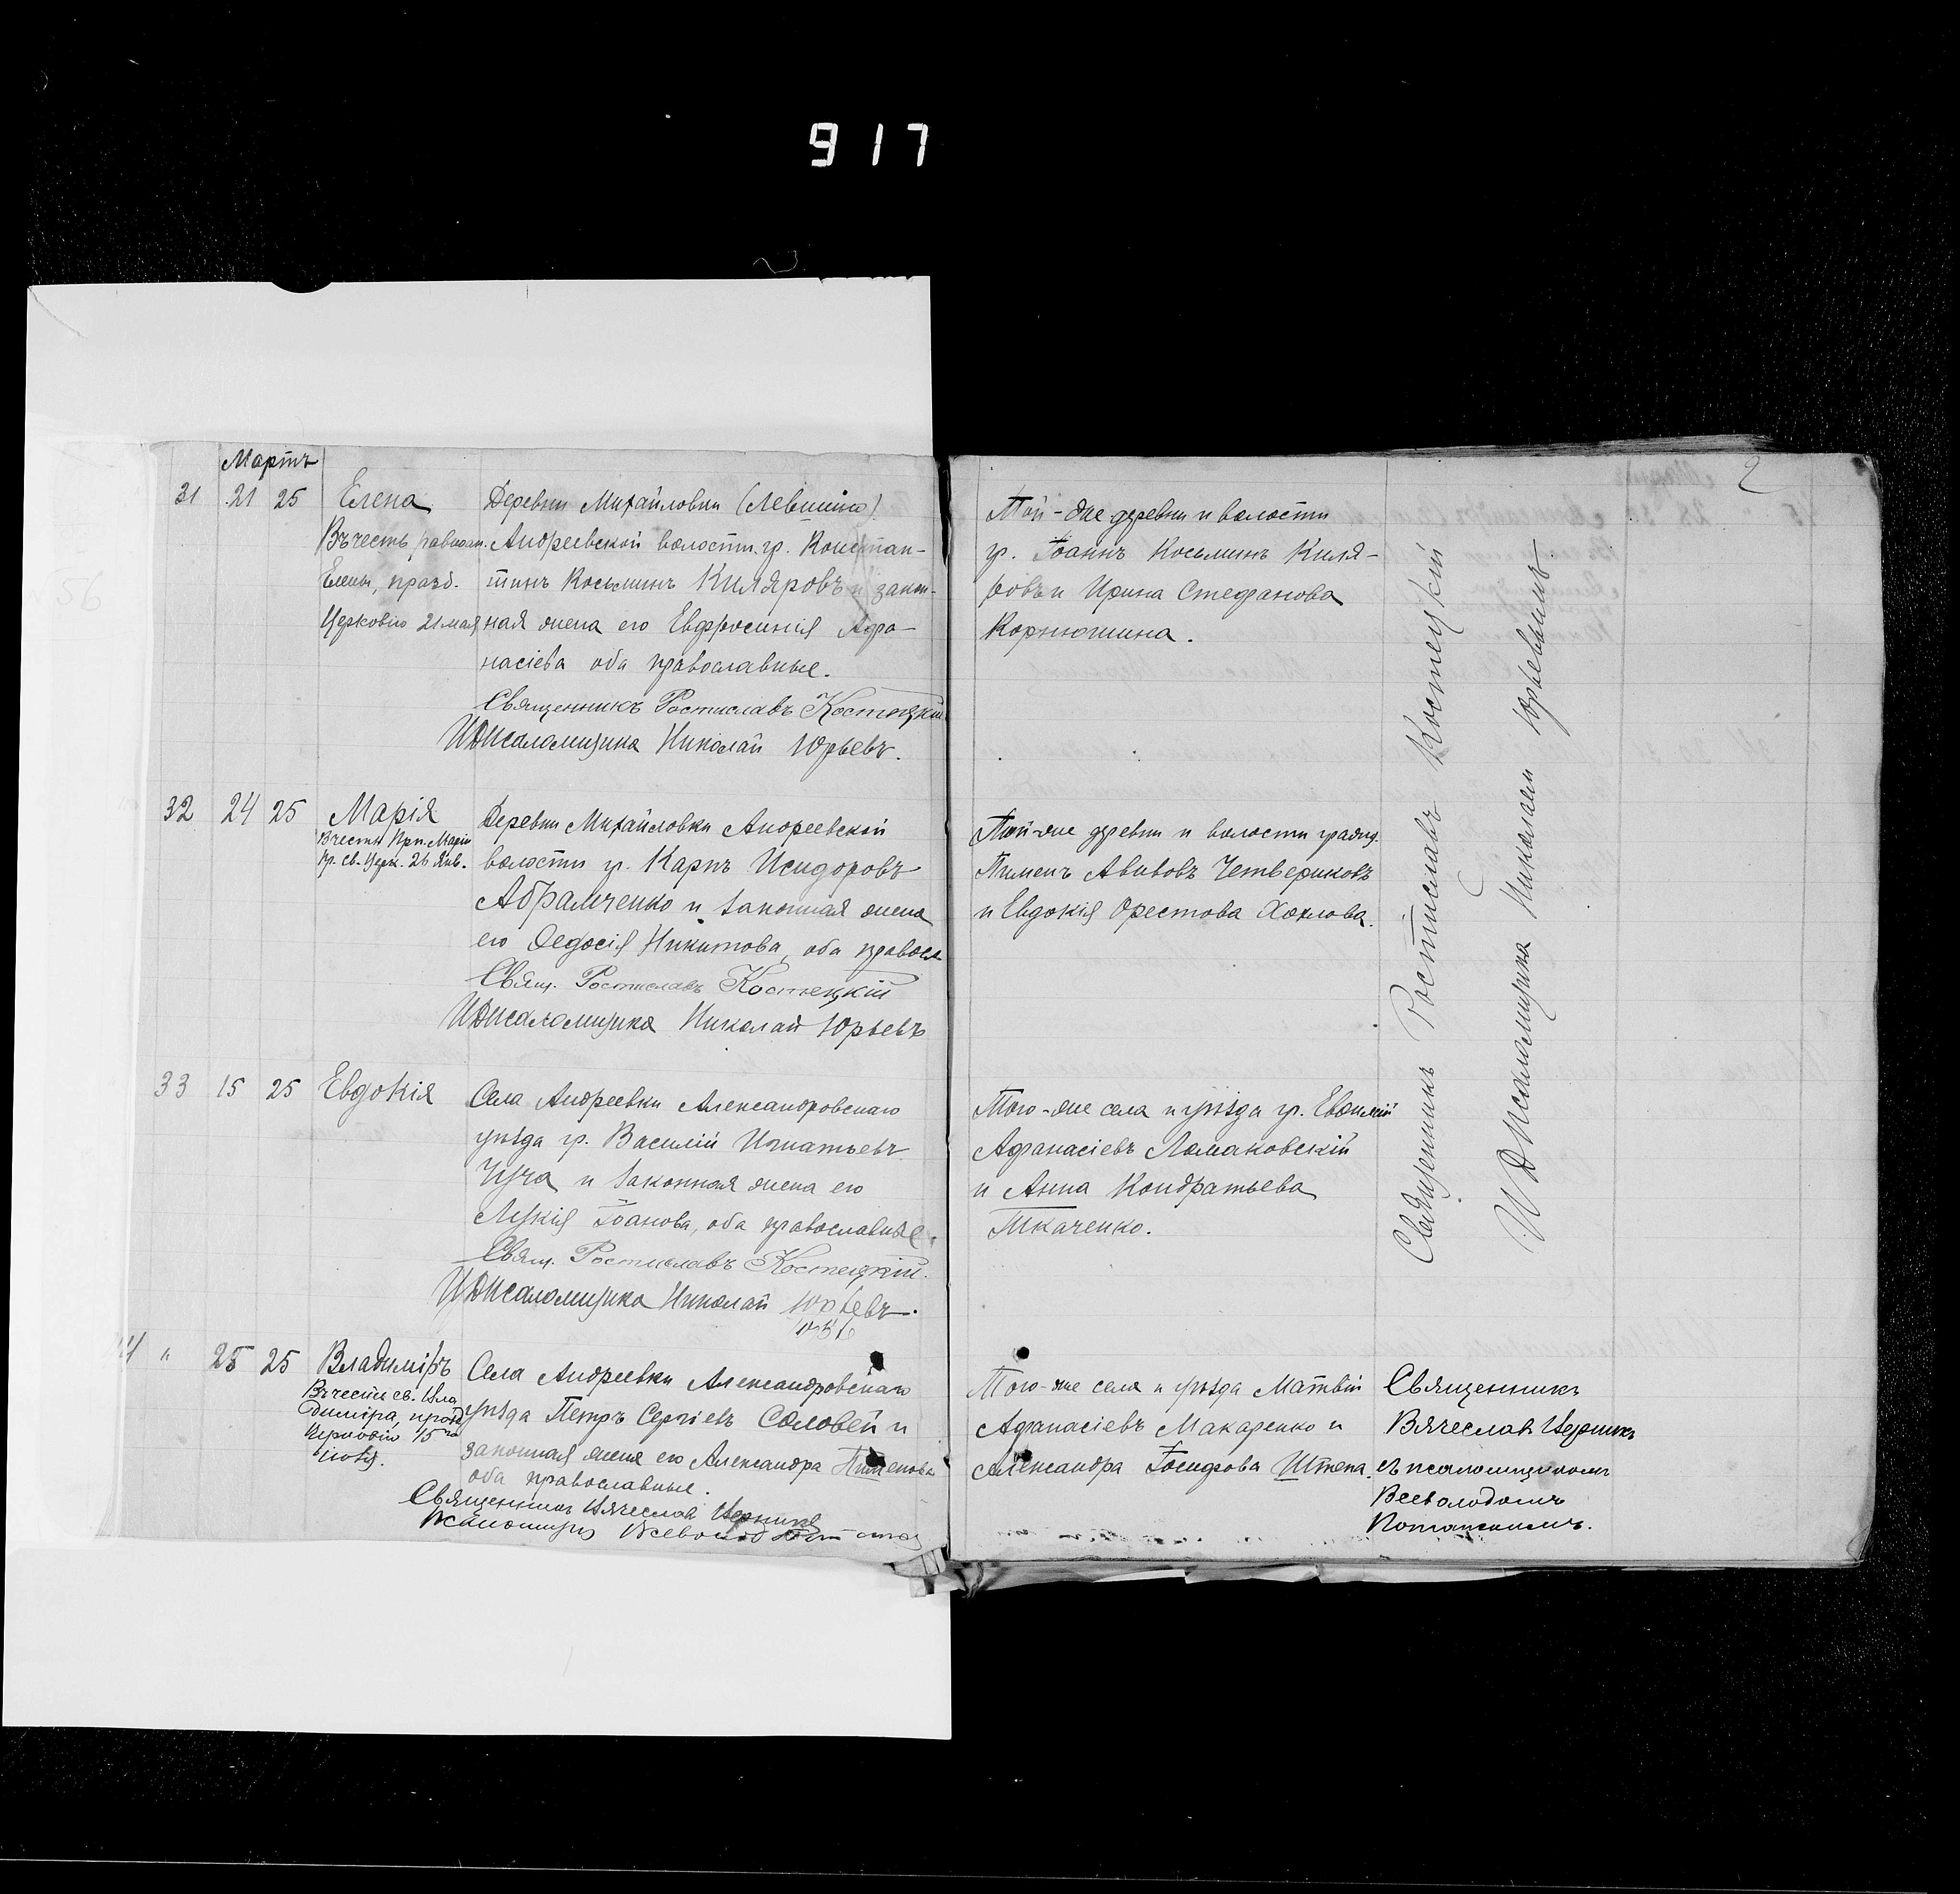 917
2
Мартъ
31 21 25 Елена
Въ честь равноап.
Елены, празд.
Церковію 21 мая
Деревни Михайловки (Левшино)
Андреевской волости гр. Констан-
тинъ Косьминъ Киляровъ и закон-
ная жена его Евфросинія Афа-
насіева оба православные.
Священникъ Ростиславъ Костецкій
И Д Псаломщика Николай Юрьевъ.
Той-же деревни и волости
гр. Іоаннъ Косьминъ Киля-
ровъ и Ирина Стефанова
Корнюшина.
32 24 25 Марія
В честь Прп. Маріи
пр. св. Церк. 26 Янв.
Деревни Михайловки Андреевской
волости гр. Карпъ Исидоровъ
Абрамченко и законная жена
его Ѳедосія Никитова, оба правосл
Свящ. Ростиславъ Костецкій
И Д Псаломщика Николай Юрьевъ
Той-же деревни и волости гражд.
Пименъ Авивовъ Четвериковъ
и Евдокія Орестова Хохлова.
33 15 25 Евдокія
Села Андреевки Александровскаго
уѣзда гр. Василій Игнатьевъ
Чуча и законная жена его
Лукія Іоанова, оба православные.
Свящ. Ростиславъ Костецкій.
И Д Псаломщика Николай Юрьевъ.
Того-же села и уѣзда гр. Евфимій
Афанасіевъ Ломаковскій
и Анна Кондратьева
Ткаченко.
Священникъ Ростиславъ Костецкій
И Д Псаломщика Николаемъ Юрьевымъ
" 25 25 Владиміръ
Въ честь св. Вла
диміра, празд
Церковію 15 го
іюля.
Села Андреевки Александровскаго
уѣзда Петръ Сергіевъ Соловей и
законная жена его Александра Пименова
оба православные.
Священникъ Вячеславъ
Псаломщикъ Всеволод
Того-же села и уѣзда Матвій
Афанасіевъ Макаренко и
Александра Іосифова Штепа.
Священникъ
Вячеславъ
съ псаломщикомъ
Всеволодомъ